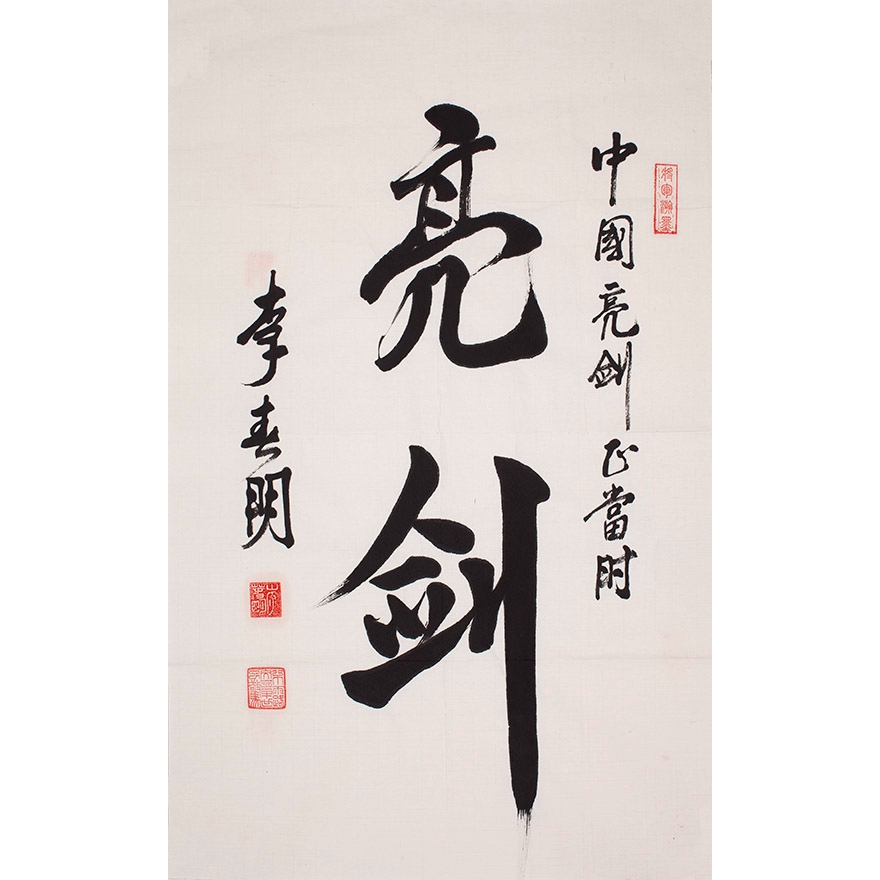 中國亮剑正當时
亮剑
李春明